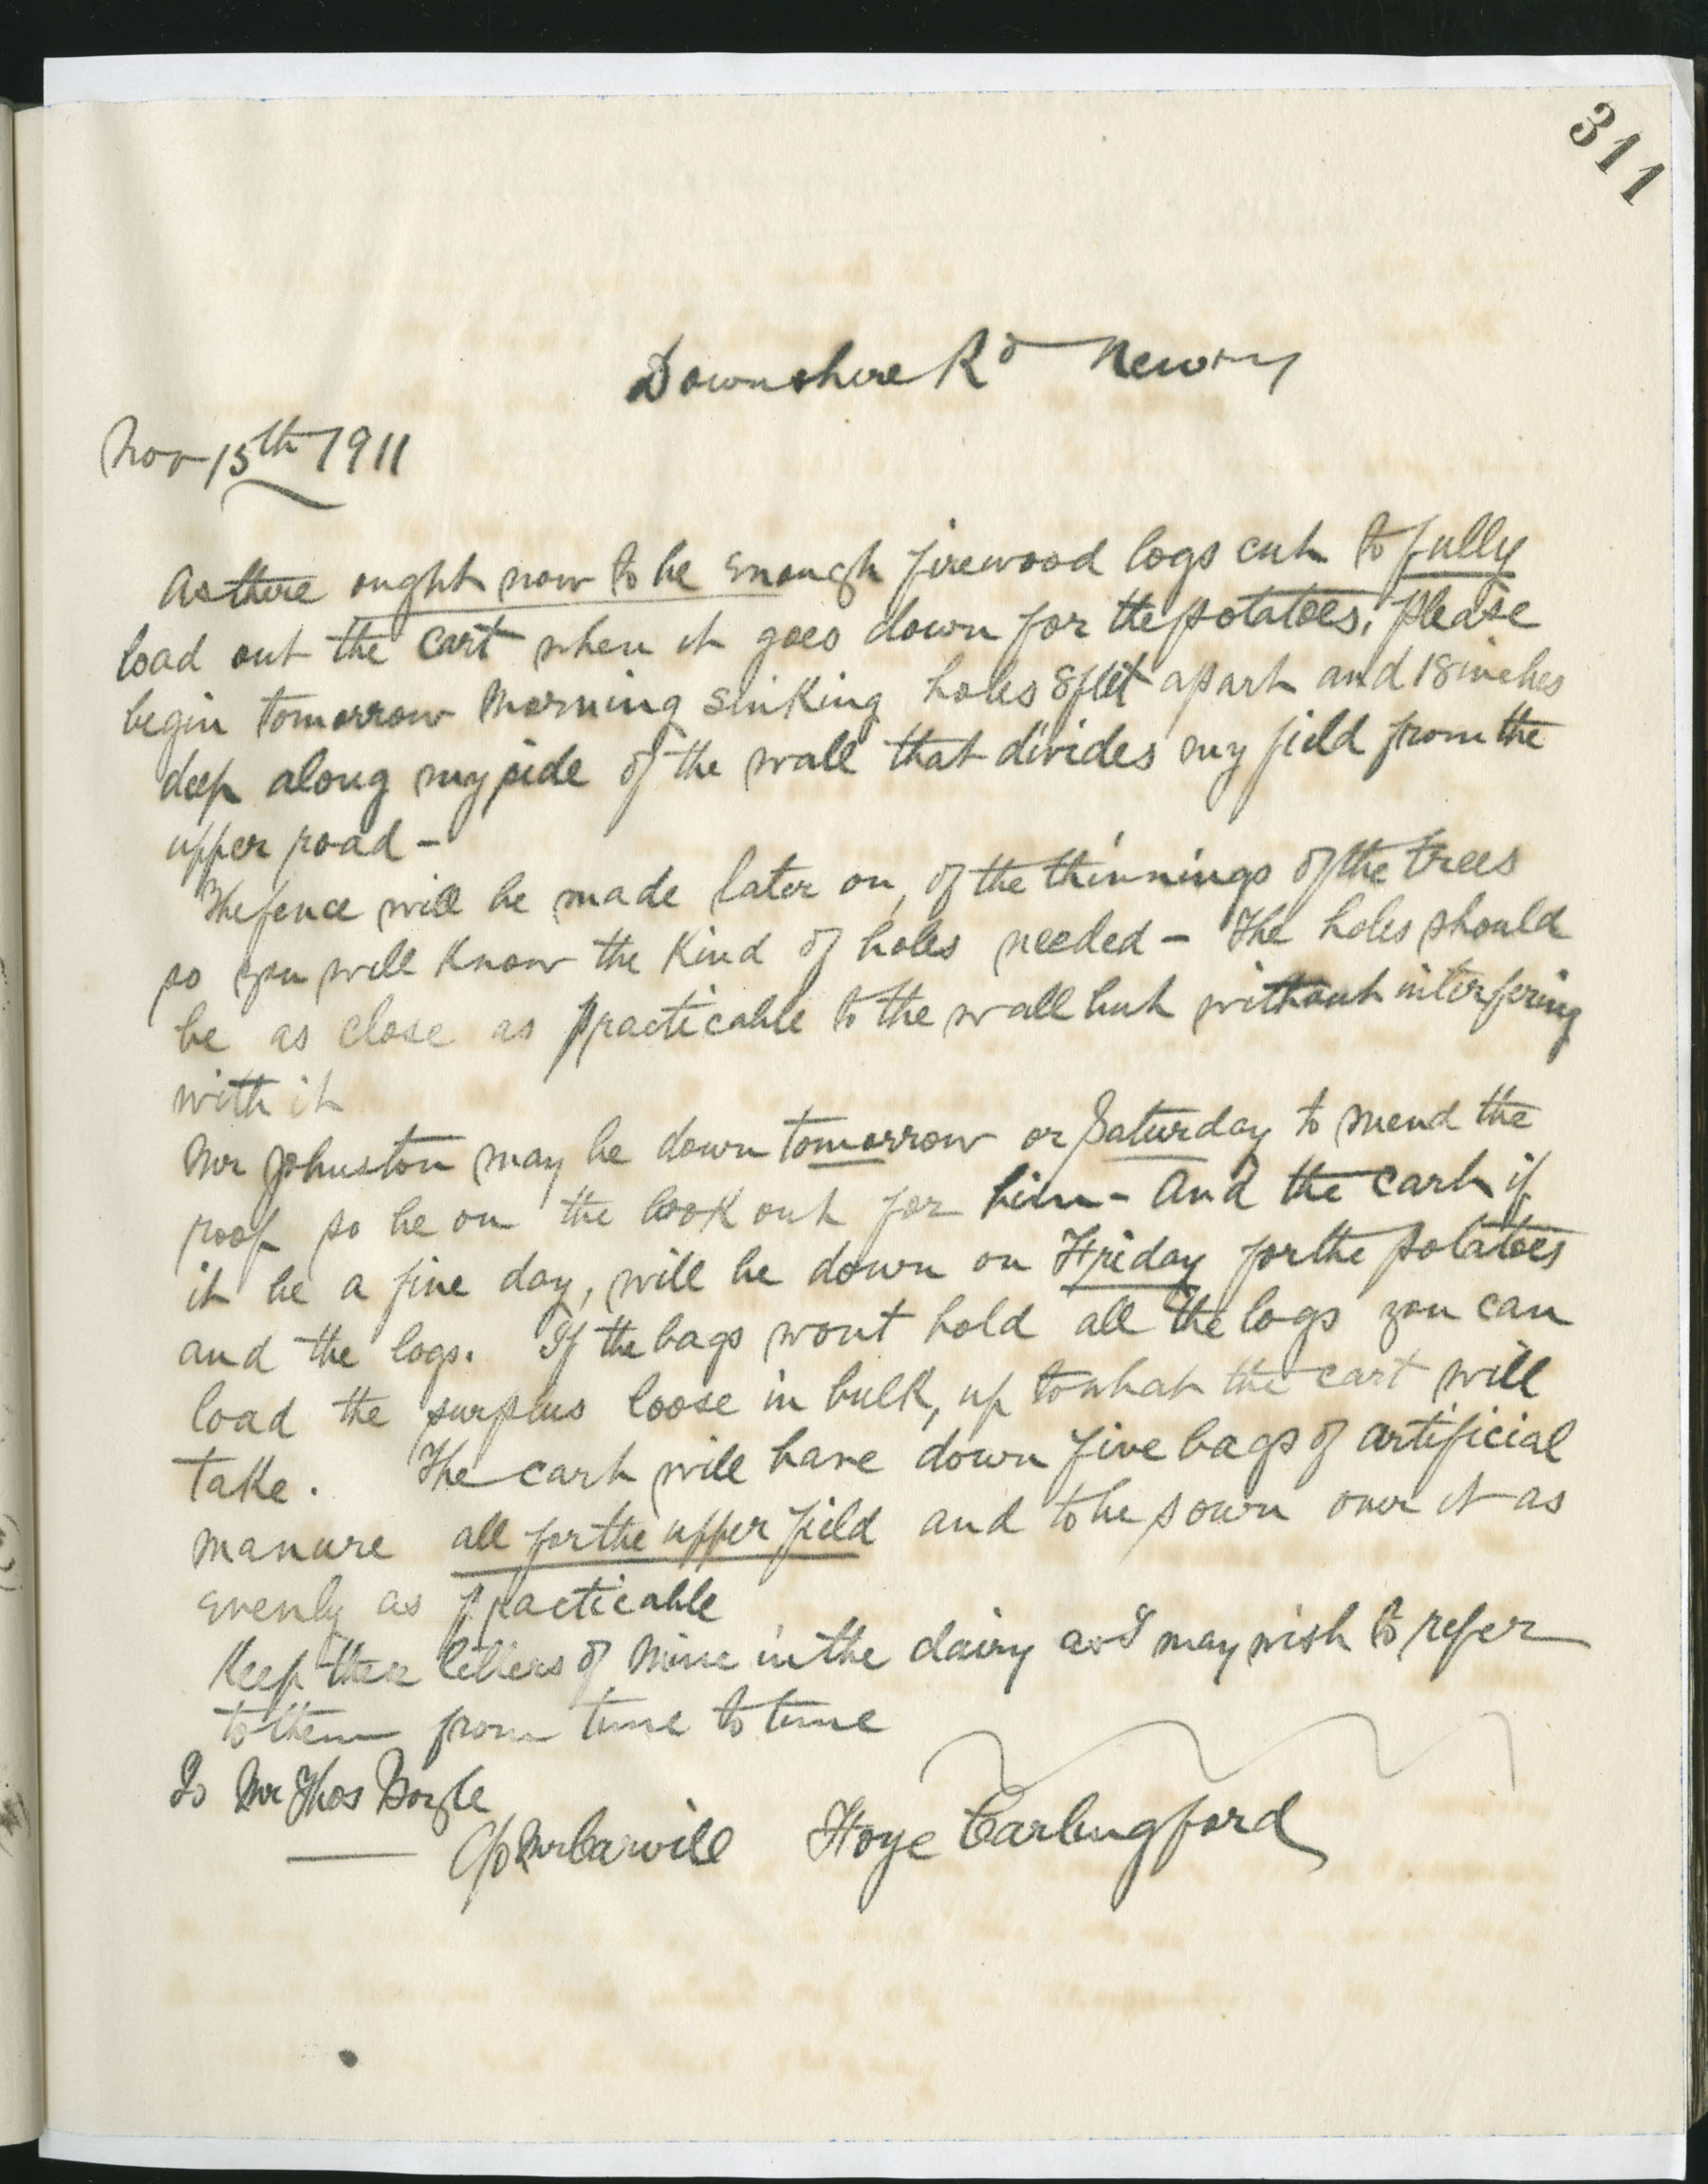 311
Downshire Rd Newry
Nov 15th 1911
As there ought now to be enough firewood logs cut to fully
load out the cart when it goes down for the potatoes, please
begin tomorrow morning sinking holes 8 feet apart and 18 inches
deep along my side of the wall that divides my field from the
upper road -
The fence will be made later on, of the thinnings of the trees
so you will know the kind of holes needed - The holes should
be as close as practicable to the wall but without interfering
with it
Mr Johnston may be down tomorrow or Saturday to mend the
roof so be on the look out for him - And the cart if
it be a fine day, will be down on Friday for the potatoes
and the logs. If the bags wont hold all the logs you can
load the surplus loose in bulk, up to what the cart will
take. The cart will have down five bags of artificial
manure all for the upper field and to be sown over it as
evenly as practicable
Keep these letters of mine in the dairy as I may wish to refer
to them from time to time
To Mr Thos Boyle
C/o Mr Carvill Hoye Carlingford